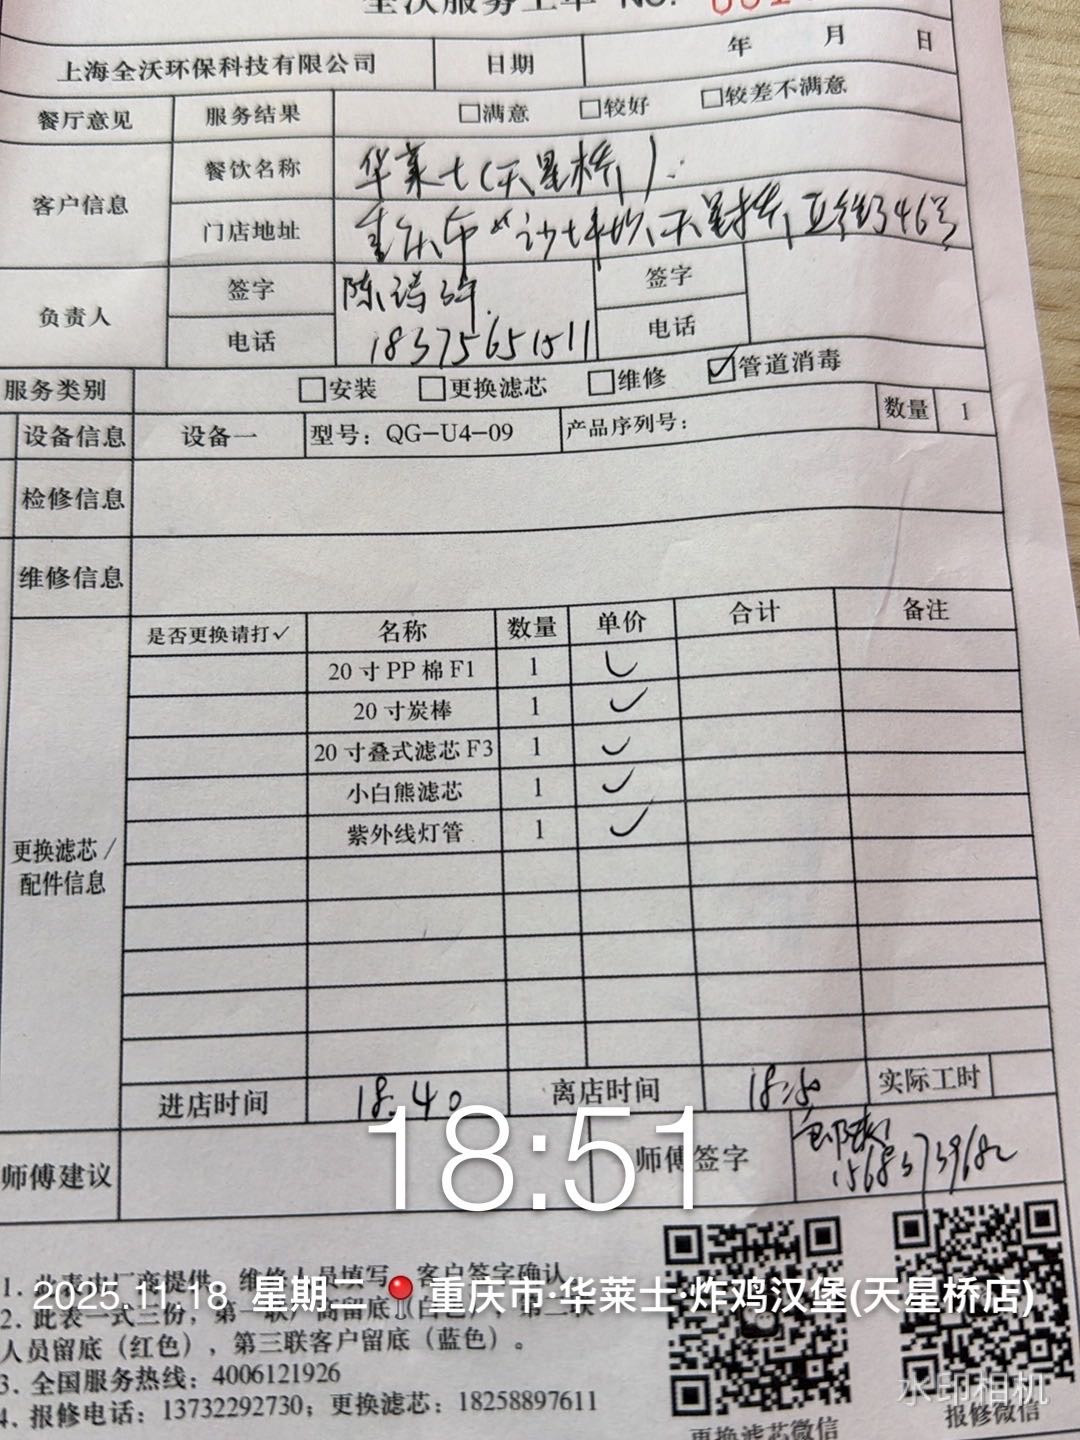 全沃服务工单 NO.
上海全沃环保科技有限公司 日期 年 月 日
餐厅意见 服务结果 □满意 □较好 □较差不满意
客户信息 餐饮名称 华莱士(天星桥)
门店地址 重庆市 天星桥正街46号
负责人 签字 签字
电话 18375651511 电话
服务类别 □安装 □更换滤芯 □维修 ☑管道消毒
设备信息 设备一 型号：QG-U4-09 产品序列号： 数量 1
检修信息
维修信息
更换滤芯/配件信息
是否更换请打✓ 名称 数量 单价 合计 备注
20寸PP棉F1 1 ✓
20寸炭棒 1 ✓
20寸叠式滤芯F3 1 ✓
小白熊滤芯 1 ✓
紫外线灯管 1 ✓
进店时间 18:40 离店时间 18:50 实际工时
师傅建议 师傅签字
15683739682
18:51
2025.11.18 星期二 重庆市·华莱士·炸鸡汉堡(天星桥店)
1. 此表由厂商提供，维修人员填写，客户签字确认
2. 此表一式三份，第一联厂商留底（白色），第二联
人员留底（红色），第三联客户留底（蓝色）。
3. 全国服务热线：4006121926
4. 报修电话：13732292730；更换滤芯：18258897611
更换滤芯微信
报修微信
水印相机